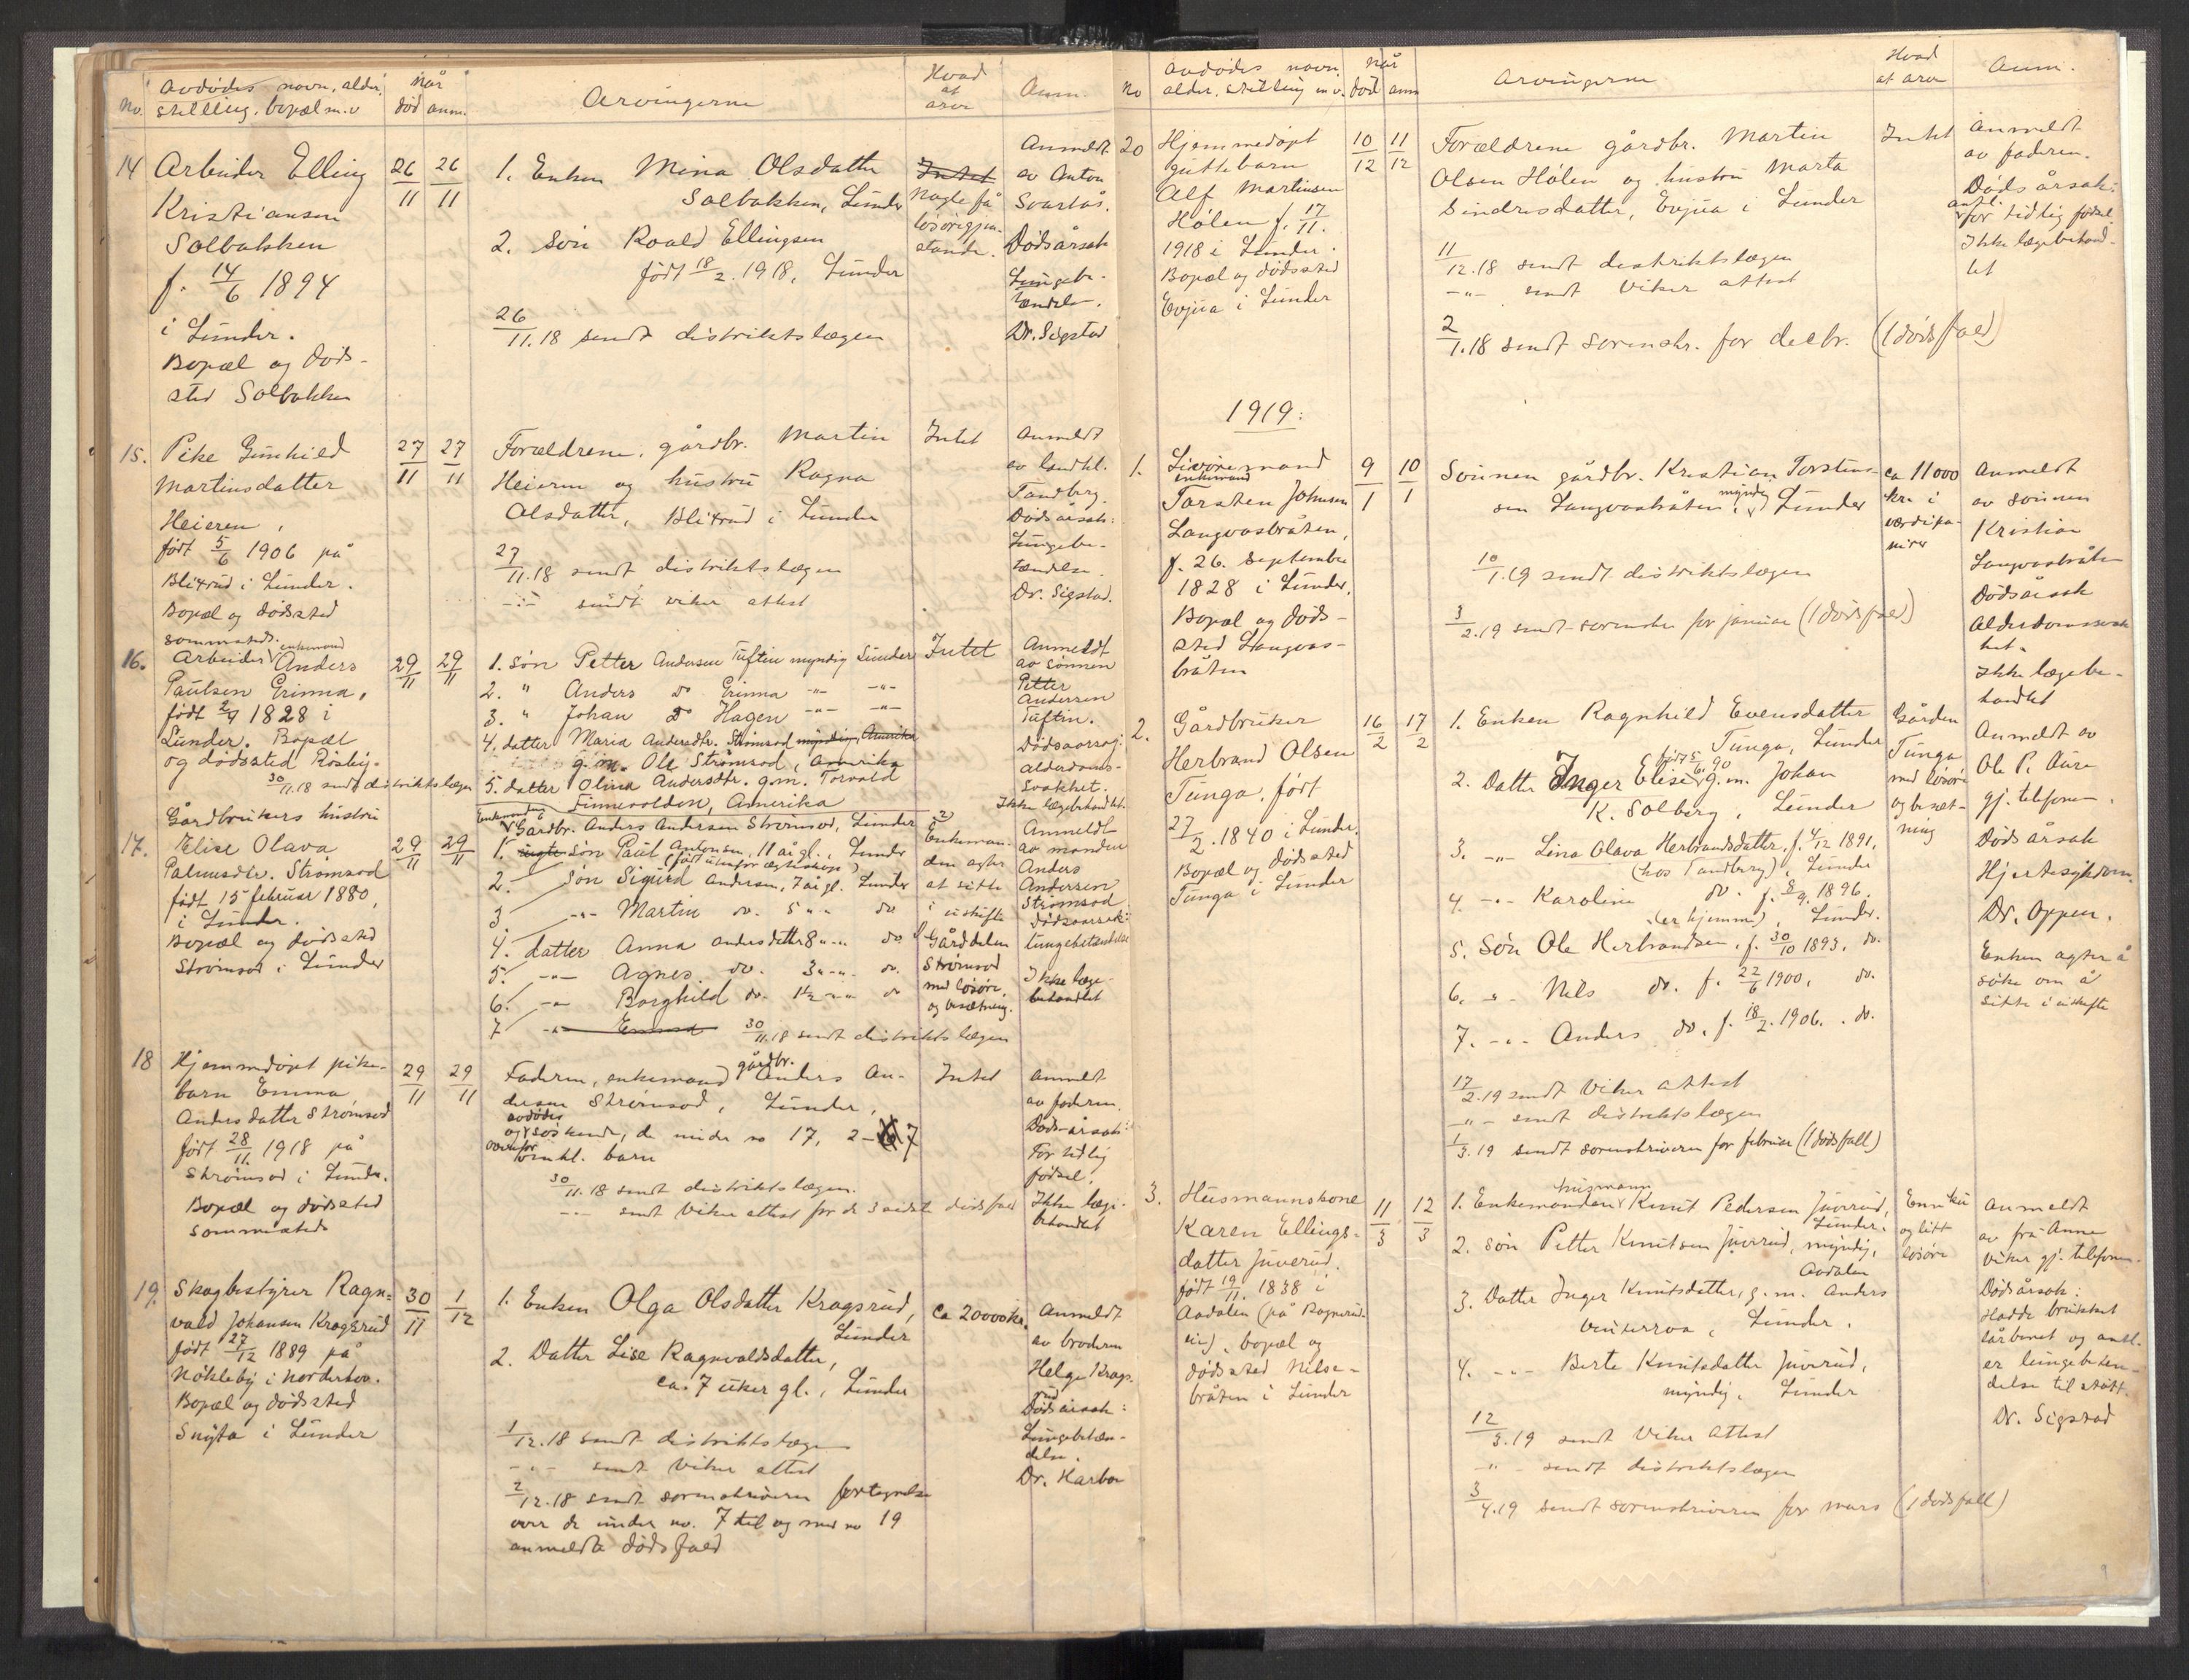 No.
avdödes navn, alder,
stilling, bopæl m.v
Når
död anm.
Arvingerne
Hvad
at
arve
Anm.
14
Arbeider Elling
Kristiansen
Solbakken
f. 14/6 1894
i Lunder.
Bopæl og döds-
sted Solbakken
26/11
26/11
1. Enken Mina Olsdatter
Solbakken, Lunder
2. Sön Roald Ellingsen
födt 18/2. 1918, Lunder
26/11.18 sendt distriktslægen
Intet
Nogle få
lösöregjen-
stande.
Anmeldt
av Anton
Svartås.
Dödsårsak
Lungebe-
tændelse.
Dr. Sigstad
15.
Pike Gunhild
Martinsdatter
Heieren,
födt 5/6 1906 på
Blixrud i Lunder.
Bopæl og dödssted
sammesteds.
27/11
27/11
Forældrene, gårdbr. Martin
Heieren og hustru Ragna
Olsdatter, Blixrud i Lunder
27/11.18 sendt distriktslægen
-"- sendt viker attest
Intet
Anmeldt
av landhl.
Tandberg.
Dödsårsak:
Lungebe-
tændelse.
Dr. Sigstad.
16.
Arbeider enkemand Anders
Paulsen Grinna,
födt 2/9 1828 i
Lunder. Bopæl
og dödssted Rosby.
30/11.18 sendt distriktslægen
29/11
29/11
1. sön Petter Andersen Tuftin myndig Lunder
2. " Anders do Grinna -"- -"-
3. " Johan do Hagen -"- -"-
4. datter Maria Andersdtr. Strömsod myndig, Amerika
g.m. Ole Strömsod, Amerika
5. datter Olina Andersdtr. g.m. Torvald
Finnevolden, Amerika
Intet
Anmeldt
av sönnen
Petter
Andersen
Tuftin.
Dödsaarsag:
alderdoms-
svakhet.
Ikke lægebehandlet.
17.
Gårdbrukers hustru
Elise Olava
Palmesdtr. Strömsod
födt 15 februar 1880,
i Lunder.
Bopæl og dödssted
Strömsod i Lunder
29/11
29/11
Enkemand
Gårdbr. Anders Andersen Strömsod, Lunder
1. sön Paul Antonsen, 11 år gl., Lunder
(födt utenfor ægteskape)
2. Sön Sigurd Andersen, 7 år gl. Lunder
3 -"- Martin do. 5 "-" do
4. datter Anna Andersdatter 8 "-" do
5. -"- Agnes do. 3 "-" do.
6. -"- Borghild do. 1½ "-" do
7 -"- Emma 30/11.18 sendt distriktslægen
Enkeman-
den agter
at sitte
i uskifte
Gårddelen
Strömsod
med lösöre
og besætning.
Anmeldt
av manden
Anders
Andersen
Strömsod
Dödsaarsak:
lungebetændelse
Ikke læge-
behandlet
18
Hjemmedöpt pike-
barn Emma
Andersdatter Strömsod
födt 28/11. 1918 på
Strömsod i Lunder.
Bopæl og dödssted
sammesteds
29/11
29/11
Faderen, enkemand gårdbr. Anders An-
dersen Strömsod, Lunder,
og avdödes söskende, de under no 17, 2-7
ovenfor
barn
30/11.18 sendt distriktslægen.
-"- sendt Viker attest for de 3 sidste dödsfald
Intet
Anmeldt
av faderen.
Dödsårsak:
For tidlig
födsel.
Ikke læge-
behandlet
19.
Skogbestyrer Ragn-
vald Johansen Kragsrud
födt 27/12 1889 på
Nökleby i Norderhov.
Bopæl og dödssted
Snyta i Lunder
30/11
1/12
1. Enken Olga Olsdatter Kragsrud,
Lunder
2. Datter Lise Ragnvaldsdatter,
ca. 7 uker gl., Lunder
1/12.18 sendt distriktslægen
-"- sendt Viker attest
2/12.18 sendt sorenskriveren fortegnelse
over de under no. 7 til og med no 19
anmeldte dödsfald
ca 20000 kr.
Anmeldt
av broderen
Helge Krags-
rud
Dödsårsak:
Lungebetæn-
delse.
Dr. Harbo
No
avdödes navn,
alder, stilling m.v.
Når
död anm
Arvingerne
Hvad
at arve
Anm.
20
Hjemmedöpt
guttebarn
Alf Martinsen
Hölen f. 17/11.
1918 i Lunder.
Bopæl og dödssted
Evjua i Lunder
10/12
11/12
Forældrene gårdbr. Martin
Olsen Hölen og hustru Marta
Sindresdatter, Evjua i Lunder
11/12.18 sendt distriktslægen
-"- sendt Viker attest
2/1.18 sendt sorenskr. for decbr. (1 dödsfald)
Intet
Anmeldt
av faderen.
Dödsårsak:
antl.
for tidlig födsel
Ikke lægebehand-
let
1919:
1.
Livöremand
enkemand
Torsten Johnsen
Langvasbråten,
f. 26. september
1828 i Lunder,
Bopæl og döds-
sted Langvas-
bråten
9/1
10/1
Sönnen gårdbr. Kristian Torsten-
sen Langvasbråten, myndig, Lunder
10/1.19 sendt distriktslægen
3/2.19 sendt sorenskr for januar (1 dödsfald)
ca 11000
kr. i
værdipa-
pirer
Anmeldt
av sönnen
Kristian
Langvasbråten
Dödsårsak
Alderdomssvak-
het.
Ikke lægebe-
handlet
2.
Gårdbruker
Herbrand Olsen
Tunga, födt
27/2. 1840 i Lunder.
Bopæl og dödssted
Tunga i Lunder
16/2
17/2
1. Enken Ragnhild Evensdatter
Tunga, Lunder
2. Datter Inger Elise födt 5/6. 90 g.m. Johan
K. Solberg, Lunder
3. -"- Lina Olava Herbrandsdatter, f. 4/12 1891,
(hos Tandberg), Lunder
4. -"- Karoline do. f. 8/9. 1896.
(er hjemme), Lunder.
5. Sön Ole Herbrandsen, f. 30/10 1893, do.
6. -"- Nils do. f. 22/6 1900, do.
7. -"- Anders do. f. 18/2. 1906. do.
17/2.19 sendt Viker attest
-"- sendt distriktslægen
1/3.19 sendt sorenskriveren for februar (1 dödsfall)
Gården
Tunga
med lösöre
og besæt-
ning
Anmeldt av
Ole P. Aure
gj. telefonen.
Dödsårsak
Hjertesykdom.
Dr. Oppen.
Enken agter å
söke om å
sitte i uskifte
3.
Husmannskone
Karen Ellings-
datter Juverud.
födt 19/11. 1838 i
Aadalen (på Ragnerud-
eie), bopæl og
dödssted Nilse-
bråten i Lunder
11/3
12/3
1. Enkemanden husmann Knut Pedersen Juverud,
Lunder.
2. sön Petter Knutsen Juverud, myndig,
Aadalen
3. Datter Inger Knutsdatter, g.m. Anders
Vinterroa, Lunder.
4. -"- Berte Knutsdatter Juverud,
myndig, Lunder
12/3.19 sendt Viker attest
-"- sendt distriktslægen
3/4.19 sendt sorenskriveren for mars (1 dödsfall)
En ku
og litt
lösöre
Anmeldt
av fru Anna
Viker gj. telefonen.
Dödsårsak:
Hadde brukket
lårbenet og antl.
er lungebeten-
delse til stött.
Dr. Sigstad